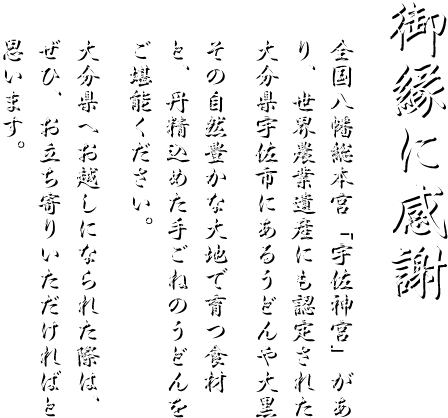 御縁に感謝
全国八幡総本宮「宇佐神宮」があ
り、世界農業遺産にも認定された
大分県宇佐市にあるうどんや大黒
その自然豊かな大地で育つ食材
と、丹精込めた手ごねのうどんを
ご堪能ください。
大分県へお越しになられた際は、
ぜひ、お立ち寄りいただければと
思います。